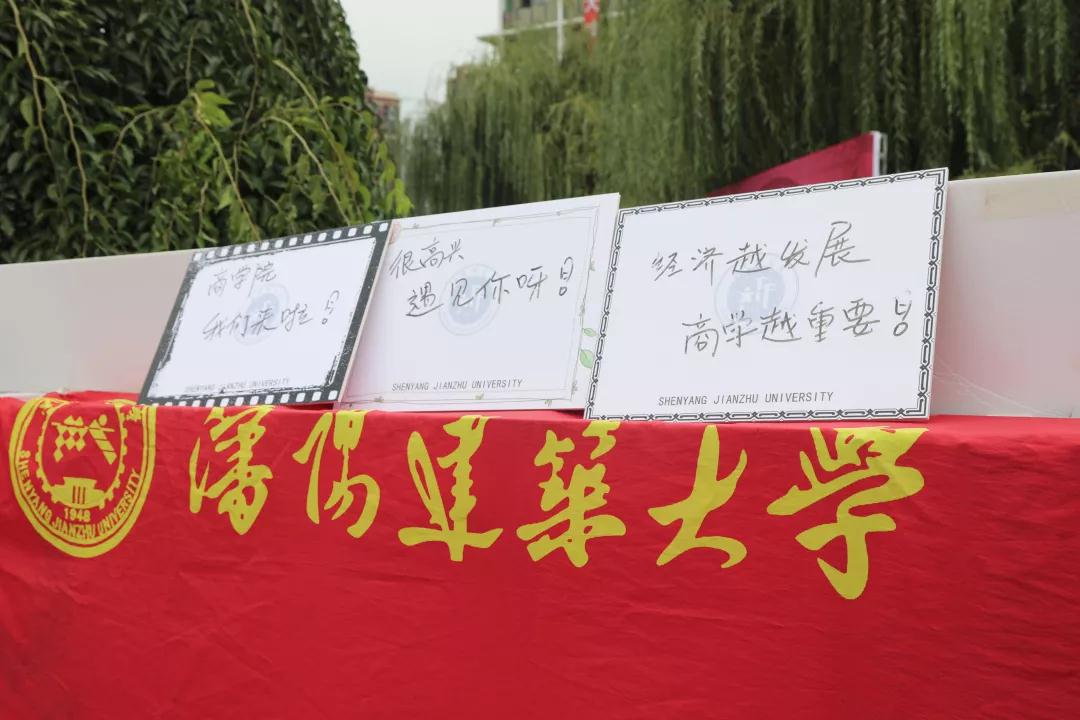 商学院
我们来啦!
SHENYANG JIANZHU UNIVERSITY
很高兴
遇见你呀!
SHENYANG JIANZHU UNIVERSITY
经济越发展
商学越重要!
SHENYANG JIANZHU UNIVERSITY
瀋陽建築大学
1948
SHENYANG JIANZHU UNIVERSITY